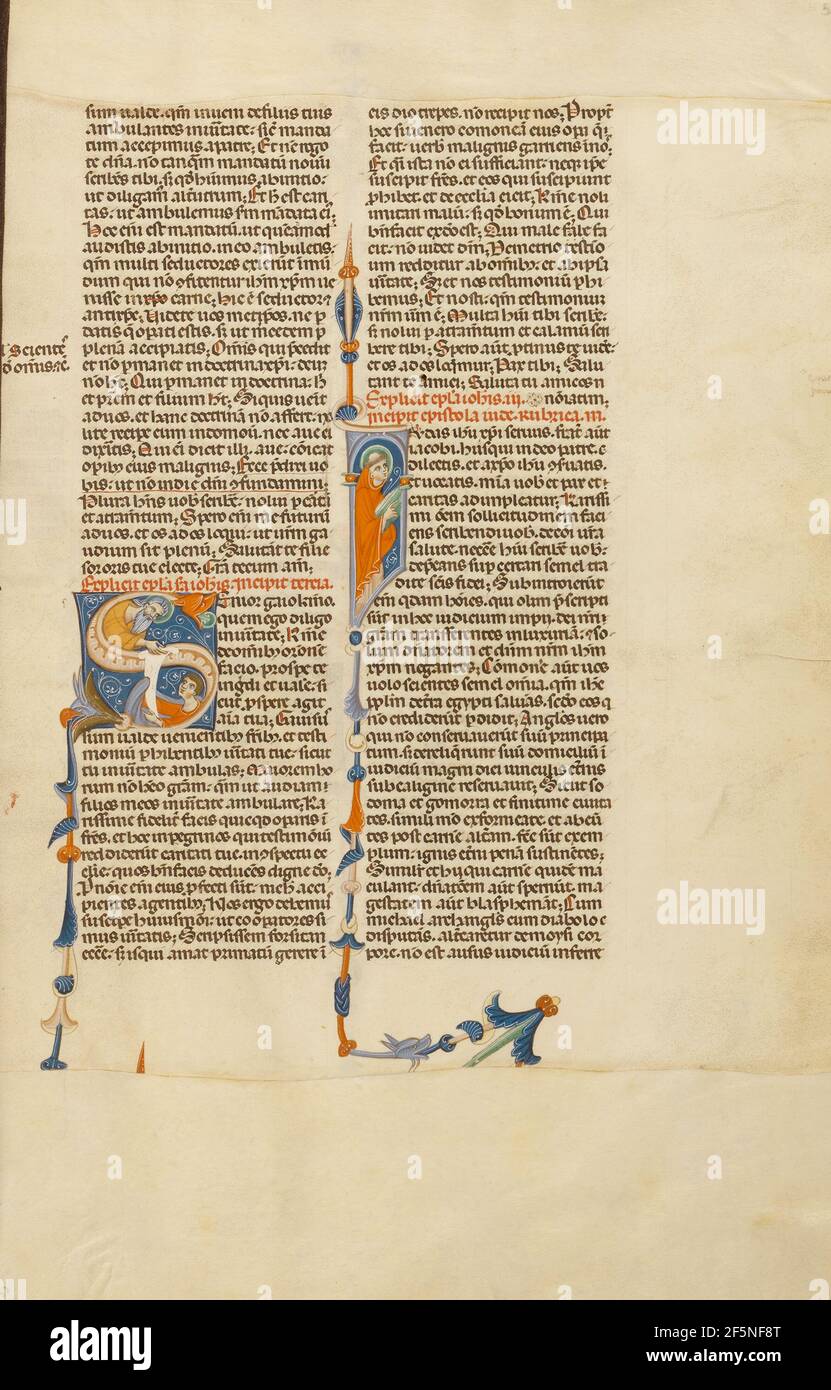 sum ualde. qm̄ inueni de filiis tuis
ambulantes in ueritate. sic̄ manda
tum accepimus a patre; Et nc̄ rogo
te dn̄a. nō tanq̄m mandatū nouū
scribēs tibi. s; qd̄ habuimus ab initio.
ut diligam alt̄utrum; Et h̄ est cari
tas. ut ambulemus sm̄ mādata ei;
Hoc eni est mandatū. ut quēadmod
audistis ab initio. in eo ambuletis.
qm̄ multi seductores exierūt ī mū
dum qui nō ꝯfitentur ihm̄ xp̄m ue
nisse in carne; hic ē seductor ⁊
antixp̄c; Uidete uos metip̄os. ne p̄
datis q̄ opati estis. s; ut mercedem
plenā accipiatis; Om̄is qui p̄cedit
et nō p̄manet in doctrina xp̄i. deū
nō h̄t; Qui p̄manet in doctrina. h̄
et p̄rem et filium h̄t; Siquis uenit
ad uos. et hanc doctrinā nō affert. no
lite recipe eum in domū. nec aue ei
dixitis; Qui ei dicit illi aue. cōicat
opib; eius malignis; Ecce p̄dixi uo
bis. ut in die dn̄i ꝯfundamini;
Plura hn̄s uob̄ scribē. nolui p̄ cartā
et atramtum; Spero eni me futurū
ad uos. et os ad os loqui. ut ur̄m ga
udium sit plenū; Salutāt te filie
sororis tue electe; Gr̄a tecum am̄;
Explicit ep̄la s̄a ioh̄is. Incipit tercia.
Senior gaio kmo.
quem ego diligo
in ueritate; Kme
de omib; orōne
facio. prospe te
ingdi et ualē. si
cut pspere agit
aīa tua; Gauisus
sum ualde uenientib; frib;. et testi
moniū phibentib; ueritati tue. sicut
tu in ueritate ambulas; Maiorem ho
rum nō h̄eo gr̄am. qm̄ ut audiam
filios meos in ueritate ambulare; Ka
rissime fidelit̄ facis quicqd opāris ī
frēs. et hoc in pegrinos qui testimōiū
reddiderūt caritati tue. in ꝯspectu ec
clie. quos bn̄ faciēs deduces digne dō;
Pro nōie eni eius pfecti sūt. nich̄ acci
pientes a gentib;; Nos ergo debemus
suscipe huiusmōi. ut coopatores si
mus ueritatis; Scripsissem forsitan
ecc̄e. s; is qui amat primatū gerere ī
l' scientē
eis diotrepes. nō recipit nos; Propt̄
hoc si uenero comonea eius opa q̄
facit. uerb malignis garriens ī nos.
Et q̄i ista nō ei sufficiant. neq; ipe
suscipit fr̄es. et eos qui suscipiunt
phibet. et de ecclia eicit; Kme noli
imitari malū. s; qd̄ bonum ē. Qui
bn̄facit ex deo est; Qui male facit
nō uidet dm̄; Demetrio testio
um redditur ab omib;. et ab ipsa
ueritate; S; et nos testimoniū phi
bemus; Et nosti. qm̄ testimoniū
nr̄m uerum ē; Multa hui tibi scribē.
s; nolui p atramtum et calamū scri
bere tibi; Spero aūt ptinus te uide.
et os ad os loqmur; Pax tibi; Salu
tant te amici; Saluta tu amicos n
Explicit ep̄la ioh̄is. iii. nōiatim.
Incipit epistola iude. Rubrica. iii.
Iudas ihū xp̄i seruus. frat̄ aūt
iacobi. his qui in deo patre
dilectis. et xp̄o ihū ꝯseruatis.
et uocatis. mīa uob̄ et pax et
caritas adimpleatur; Karissi
mi ōem sollicitudinem faci
ens scribendi uob. de cōi ur̄a
salute. necesse hui scribē uob.
depcans supcertari semel tra
dite scīs fidei; Subintroierūt
eni qdam hoīes. qui olim pscripti
sūt in hoc iudicium impii. dei nr̄i
gr̄am transferentes in luxuriā. ⁊ so
lum dn̄atorem et dn̄m nr̄m ihm̄
xp̄m negantes; Cōmone aūt uos
uolo scientes semel omīa. qm̄ ihc̄
pplm de tr̄a egypti saluās. scd̄o eos q
nō crediderūt pdidit; Angl̄os uero
qui nō conseruauerūt suū principa
tum. s; dereliqrunt suū domiciliū ī
iudiciū magni diei uinculis etn̄is
sub caligine reseruauit; Sicut so
doma et gomorra et finitime ciuita
tes. simili mō exfornicate. et abeū
tes post carnē altam. fc̄e sūt exem
plum. ignis etn̄i penā sustinētes;
Similit̄ et hii qui carnē quidē ma
culant. dn̄atōem aūt spernūt. ma
gestatem aūt blasphemāt; Cum
michael archangls cum diabolo
disputās. altcaretur de moysi cor
pore. nō est ausus iudiciū inferre
alamy
www.alamy.com
Image ID: 2F5NF8T